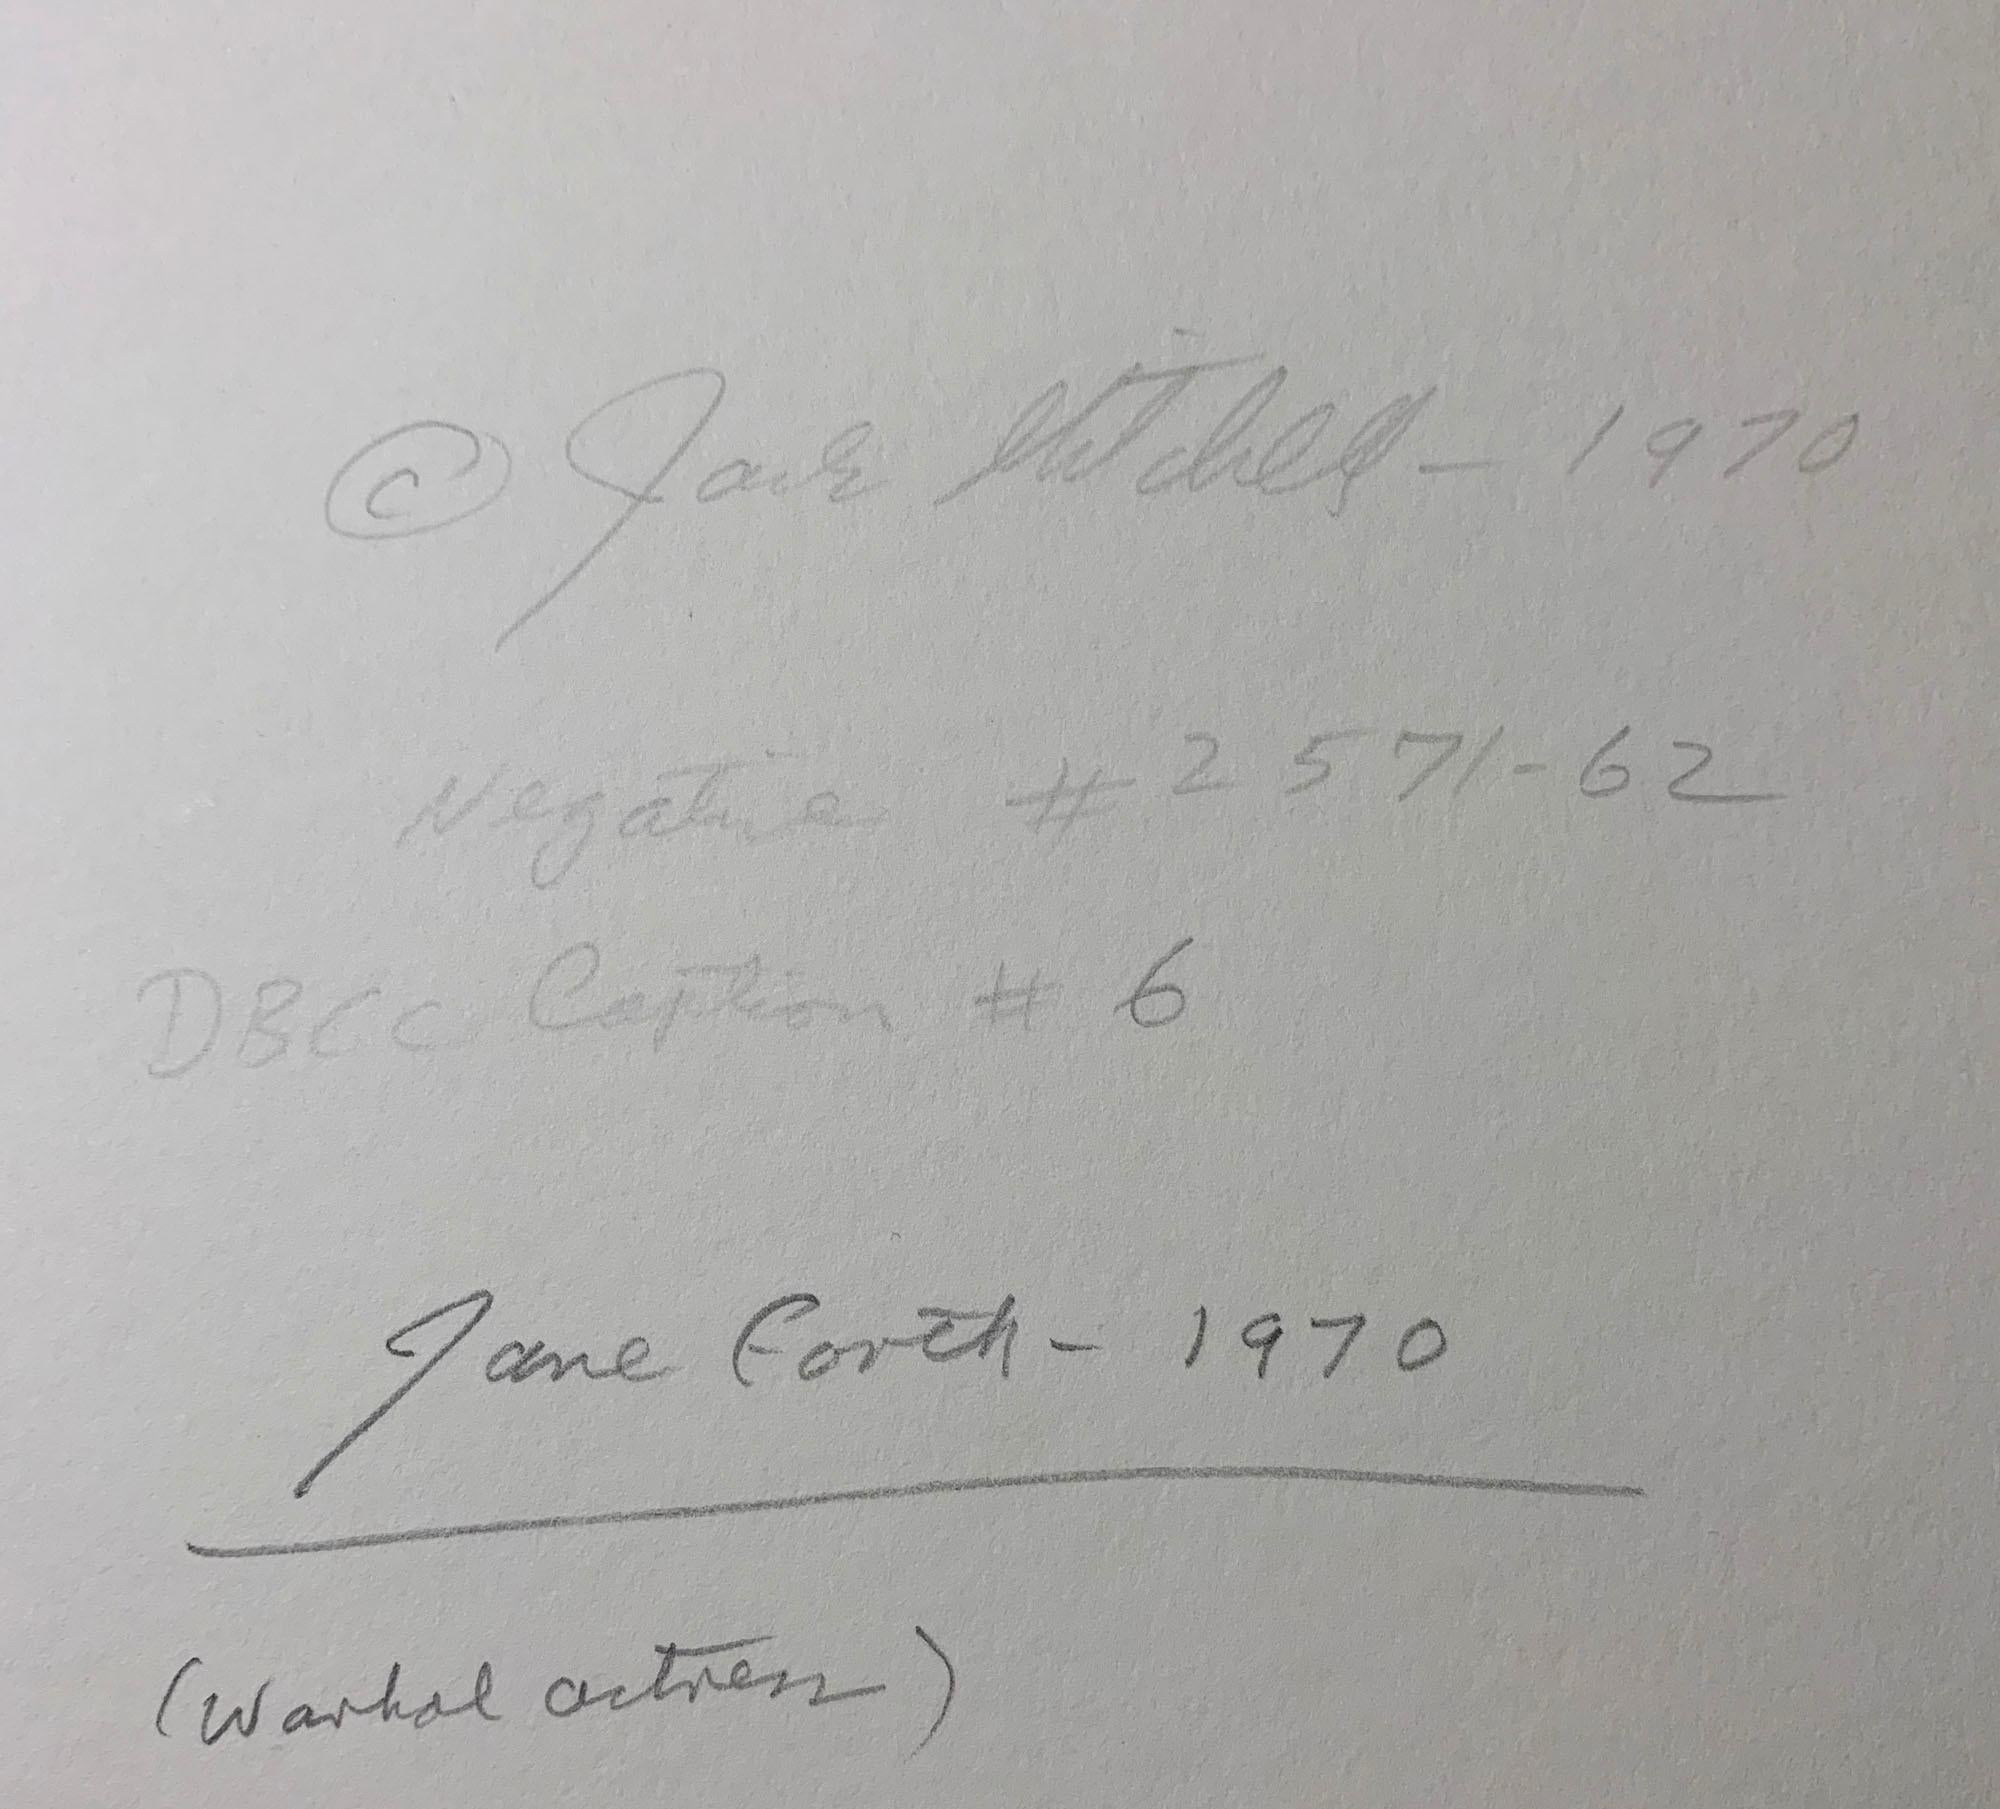 © Jack Mitchell - 1970
Negative # 2571-62
DBCC Caption # 6
Jane Forth - 1970
(Warhol actress)